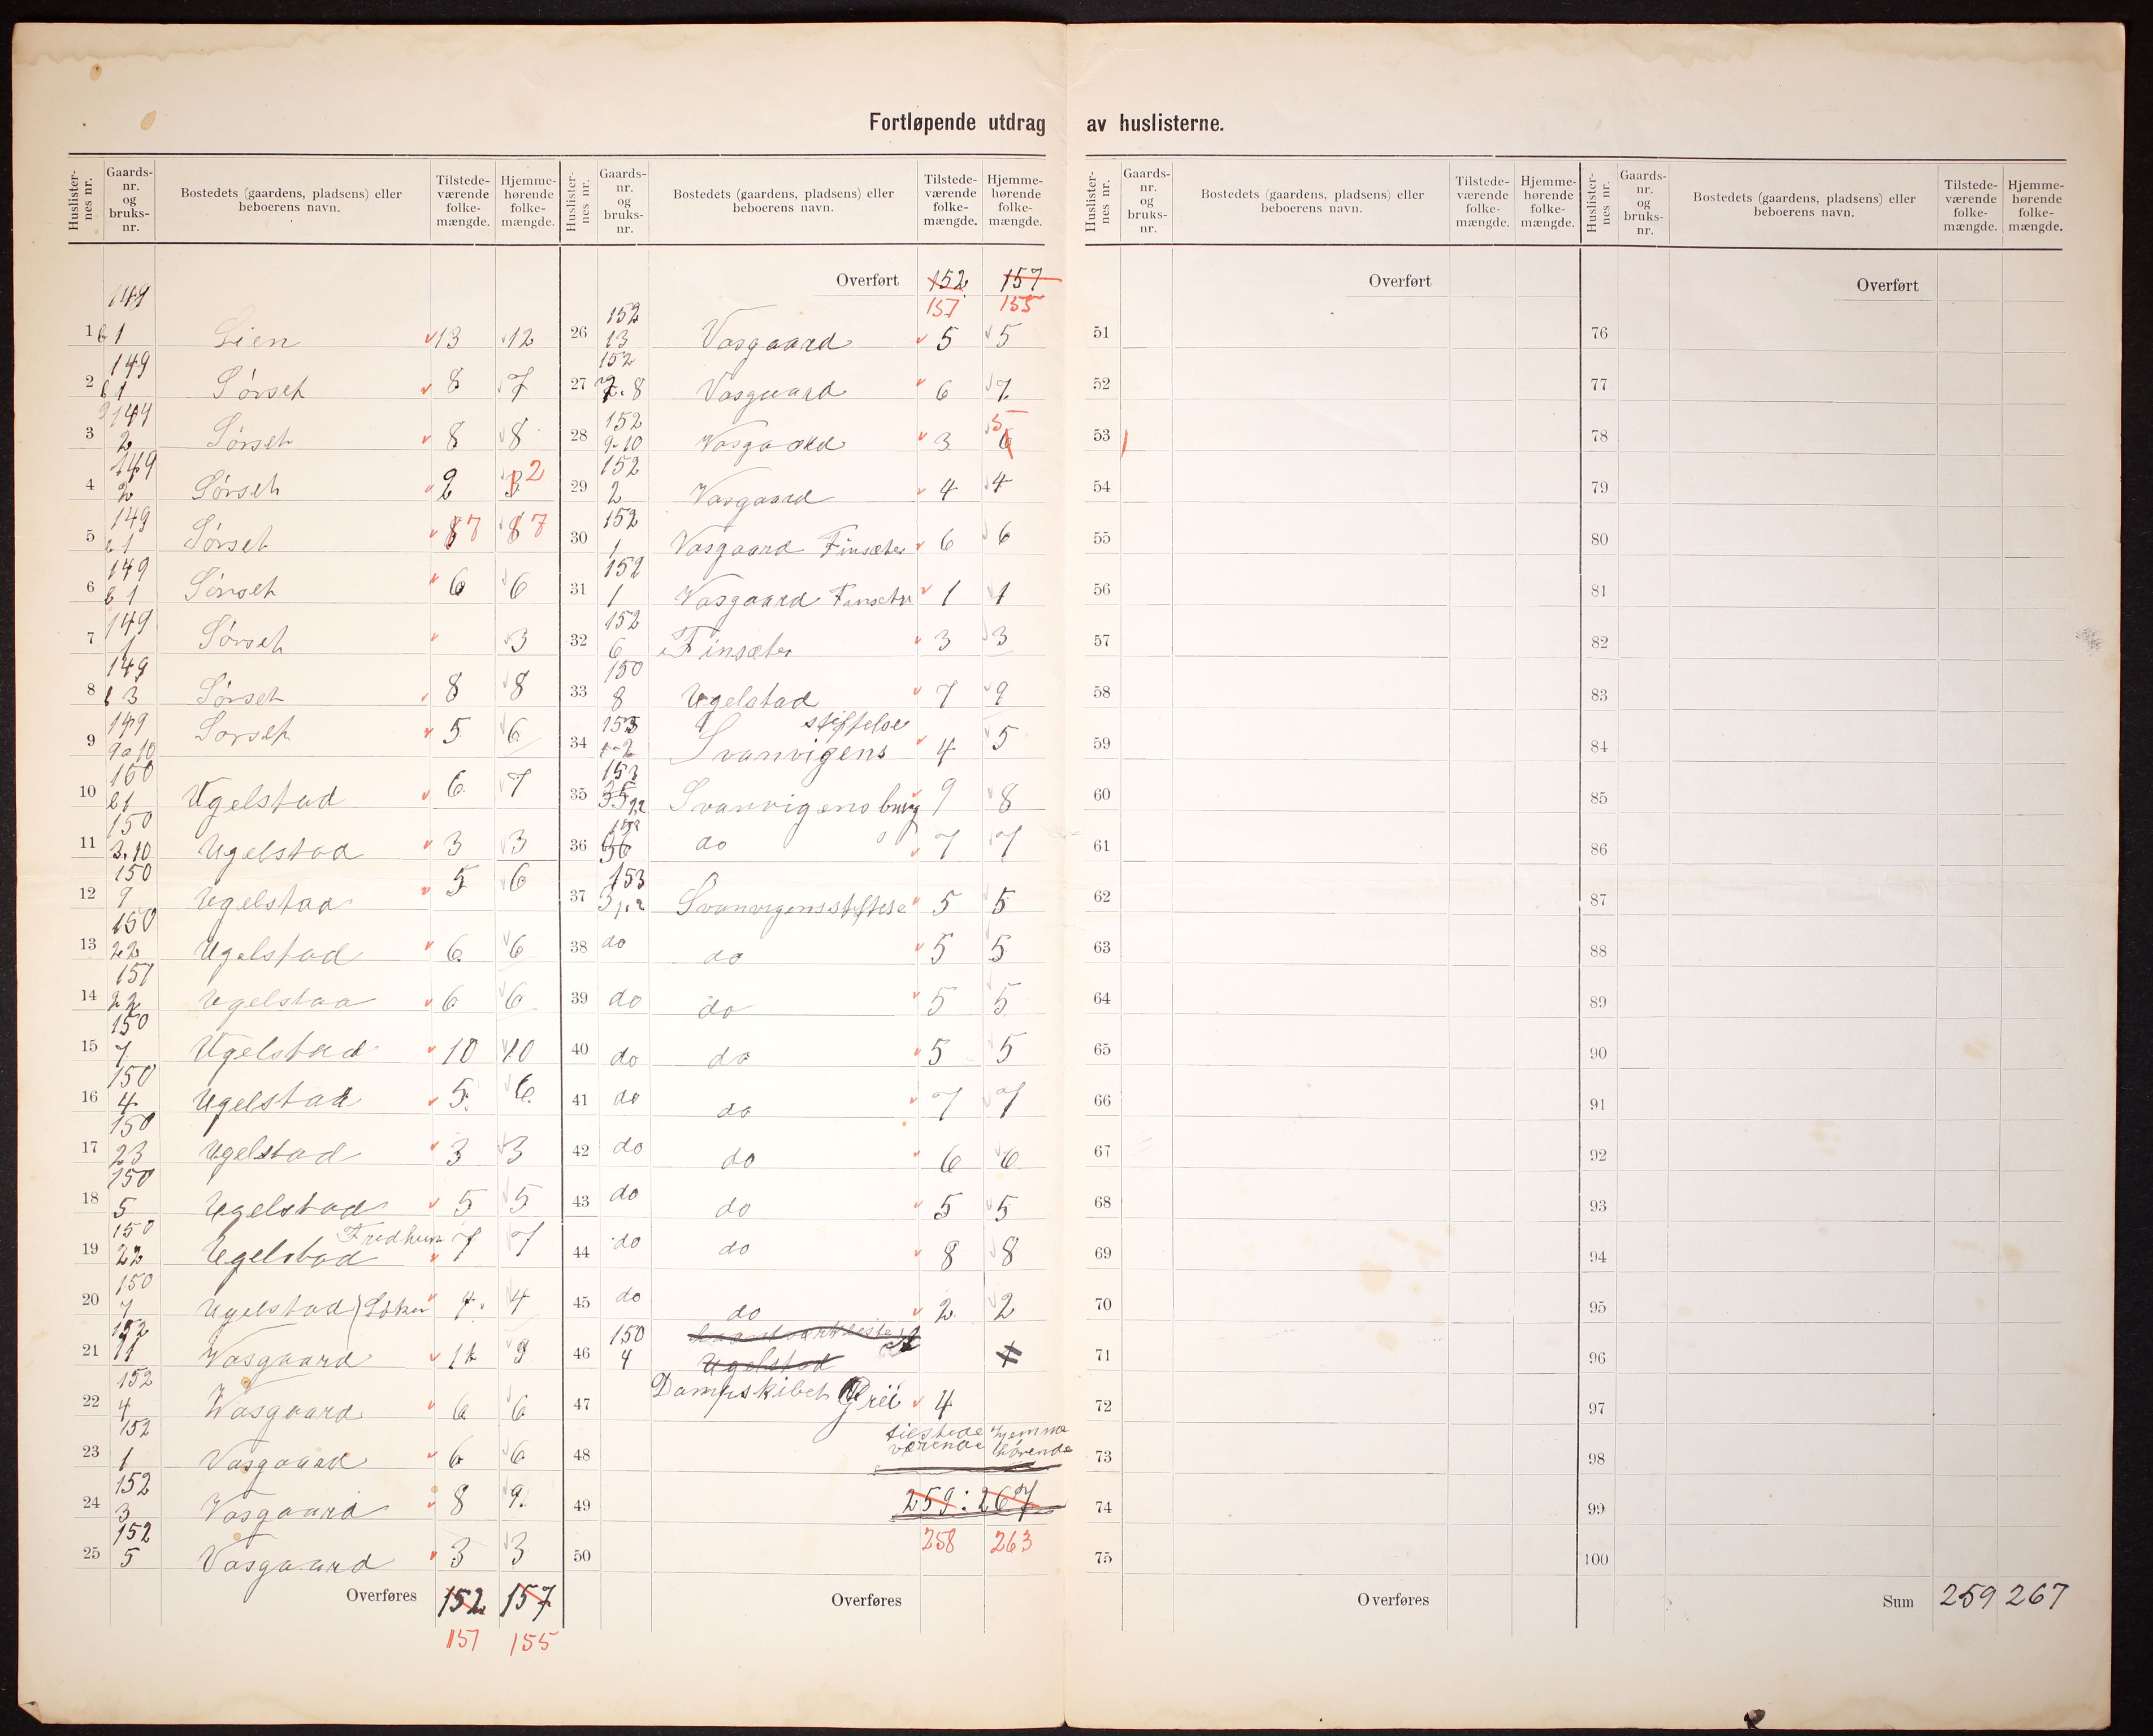 Fortløpende utdrag av huslisterne.
Huslister-nes nr. | Gaards-nr. og bruks-nr. | Bostedets (gaardens, pladsens) eller beboerens navn. | Tilstede-værende folke-mængde. | Hjemme-hørende folke-mængde.
1 149 1 Lien 13 12
2 149 1 Sørset 8 7
3 149 2 Sørset 8 8
4 149 2 Sørset 2 2
5 149 1 Sørset 8 7 8 7
6 149 1 Sørset 6 6
7 149 1 Sørset 3
8 149 3 Sørset 8 8
9 149 9 a 10 Sørset 5 6
10 150 1 Ugelstad 6 7
11 150 3.10 Ugelstad 3 3
12 150 9 Ugelstad 5 6
13 150 22 Ugelstad 6 6
14 151 22 Ugelstad 6 6
15 150 7 Ugelstad 10 10
16 150 4 Ugelstad 5 6
17 150 23 Ugelstad 3 3
18 150 5 Ugelstad 5 5
19 150 22 Ugelstad Fredheim 7 7
20 150 7 Ugelstad 4 4
21 152 11 Vasgaard 11 9
22 152 4 Vasgaard 6 6
23 152 1 Vasgaard 6 6
24 152 3 Vasgaard 8 9
25 152 5 Vasgaard 3 3
Overføres 152 157
151 155
Huslister-nes nr. | Gaards-nr. og bruks-nr. | Bostedets (gaardens, pladsens) eller beboerens navn. | Tilstede-værende folke-mængde. | Hjemme-hørende folke-mængde.
Overført 152 157
151 155
26 152 13 Vasgaard 5 5
27 152 7.8 Vasgaard 6 7
28 152 9.10 Vasgaard 3 6 5
29 152 2 Vasgaard 4 4
30 152 1 Vasgaard Finsæter 6 6
31 152 1 Vasgaard Finsæter 1 1
32 152 6 Finsæter 3 3
33 150 8 Ugelstad 7 9
34 153 1-2 Svanvigens stiftelse 4 5
35 153 Svanvigens 9 8
36 do 7 7
37 153 Svanvigensstiftelse 5 5
38 do do 5 5
39 do do 5 5
40 do do 5 5
41 do do 7 7
42 do do 6 6
43 do do 5 5
44 do do 8 8
45 do do 2 2
46 150 4 Ugelstad
47 Dampskibet Grei 4
48 tilstede værende hjemme hørende
49 259 : 267
258 263
50
Overføres
Huslister-nes nr. | Gaards-nr. og bruks-nr. | Bostedets (gaardens, pladsens) eller beboerens navn. | Tilstede-værende folke-mængde. | Hjemme-hørende folke-mængde.
Overført
51
52
53
54
55
56
57
58
59
60
61
62
63
64
65
66
67
68
69
70
71
72
73
74
75
Overføres
Huslister-nes nr. | Gaards-nr. og bruks-nr. | Bostedets (gaardens, pladsens) eller beboerens navn. | Tilstede-værende folke-mængde. | Hjemme-hørende folke-mængde.
Overført
76
77
78
79
80
81
82
83
84
85
86
87
88
89
90
91
92
93
94
95
96
97
98
99
100
Sum 259 267